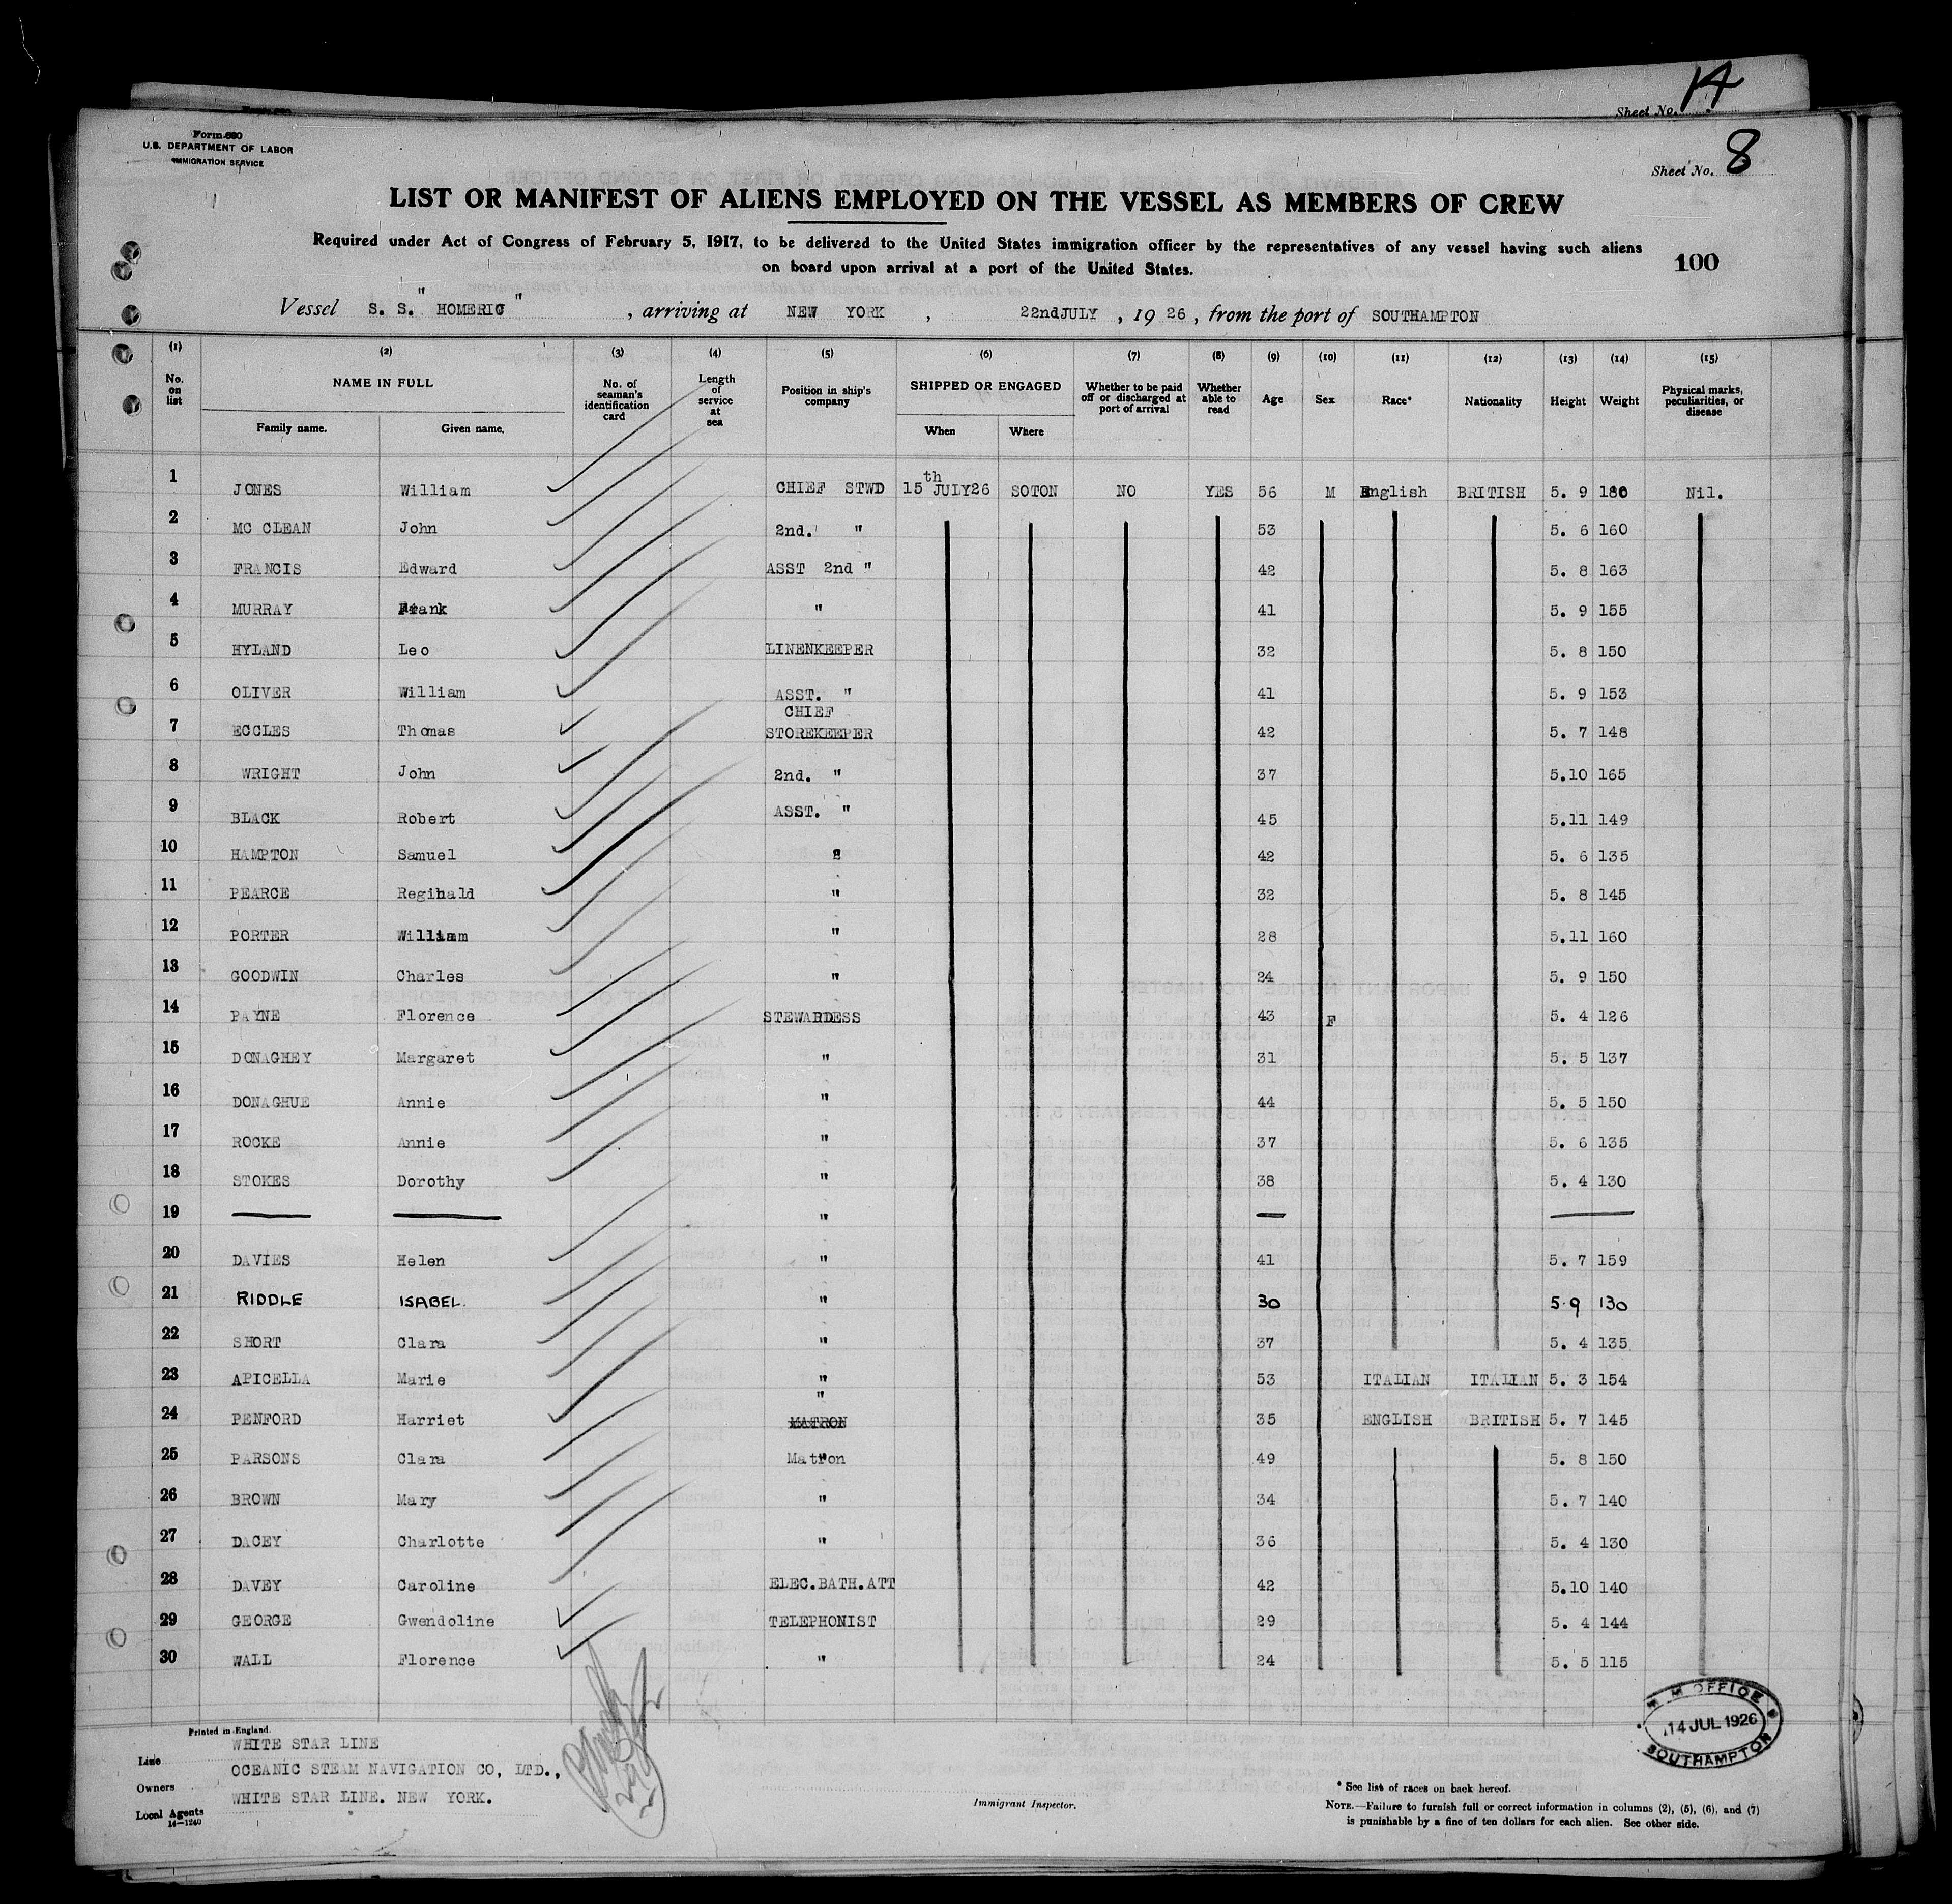 Sheet No. 14
Form 680
U.S. DEPARTMENT OF LABOR
IMMIGRATION SERVICE
Sheet No. 8
LIST OR MANIFEST OF ALIENS EMPLOYED ON THE VESSEL AS MEMBERS OF CREW
Required under Act of Congress of February 5, 1917, to be delivered to the United States immigration officer by the representatives of any vessel having such aliens
on board upon arrival at a port of the United States.
100
Vessel S. S. "HOMERIC" , arriving at NEW YORK , 22nd JULY , 19 26 , from the port of SOUTHAMPTON
(1) (2) (3) (4) (5) (6) (7) (8) (9) (10) (11) (12) (13) (14) (15)
No. on list NAME IN FULL Family name. Given name. No. of seaman's identification card Length of service at sea Position in ship's company SHIPPED OR ENGAGED When Where Whether to be paid off or discharged at port of arrival Whether able to read Age Sex Race* Nationality Height Weight Physical marks, peculiarities, or disease
1 JONES William CHIEF STWD 15th JULY26 SOTON NO YES 56 M English BRITISH 5. 9 180 Nil.
2 MC CLEAN John 2nd. " 53 5. 6 160
3 FRANCIS Edward ASST 2nd " 42 5. 8 163
4 MURRAY Frank " 41 5. 9 155
5 HYLAND Leo LINENKEEPER 32 5. 8 150
6 OLIVER William ASST. " 41 5. 9 153
7 ECCLES Thomas CHIEF STOREKEEPER 42 5. 7 148
8 WRIGHT John 2nd. " 37 5.10 165
9 BLACK Robert ASST. " 45 5.11 149
10 HAMPTON Samuel " 42 5. 6 135
11 PEARCE Reginald " 32 5. 8 145
12 PORTER William " 28 5.11 160
13 GOODWIN Charles " 24 5. 9 150
14 PAYNE Florence STEWARDESS 43 F 5. 4 126
15 DONAGHEY Margaret " 31 5. 5 137
16 DONAGHUE Annie " 44 5. 5 150
17 ROCKE Annie " 37 5. 6 135
18 STOKES Dorothy " 38 5. 4 130
19 — — " — —
20 DAVIES Helen " 41 5. 7 159
21 RIDDLE ISABEL " 30 5.9 130
22 SHORT Clara " 37 5. 4 135
23 APICELLA Marie " 53 ITALIAN ITALIAN 5. 3 154
24 PENFORD Harriet " MATRON 35 ENGLISH BRITISH 5. 7 145
25 PARSONS Clara Matron 49 5. 8 150
26 BROWN Mary " 34 5. 7 140
27 DACEY Charlotte " 36 5. 4 130
28 DAVEY Caroline ELEC.BATH.ATT 42 5.10 140
29 GEORGE Gwendoline TELEPHONIST 29 5. 4 144
30 WALL Florence " 24 5. 5 115
Printed in England.
Line WHITE STAR LINE
Owners OCEANIC STEAM NAVIGATION CO, LTD.,
Local Agents WHITE STAR LINE. NEW YORK.
14—1240
Immigrant Inspector.
M OFFICE
14 JUL 1926
SOUTHAMPTON
* See list of races on back hereof.
NOTE.—Failure to furnish full or correct information in columns (2), (5), (6), and (7)
is punishable by a fine of ten dollars for each alien. See other side.